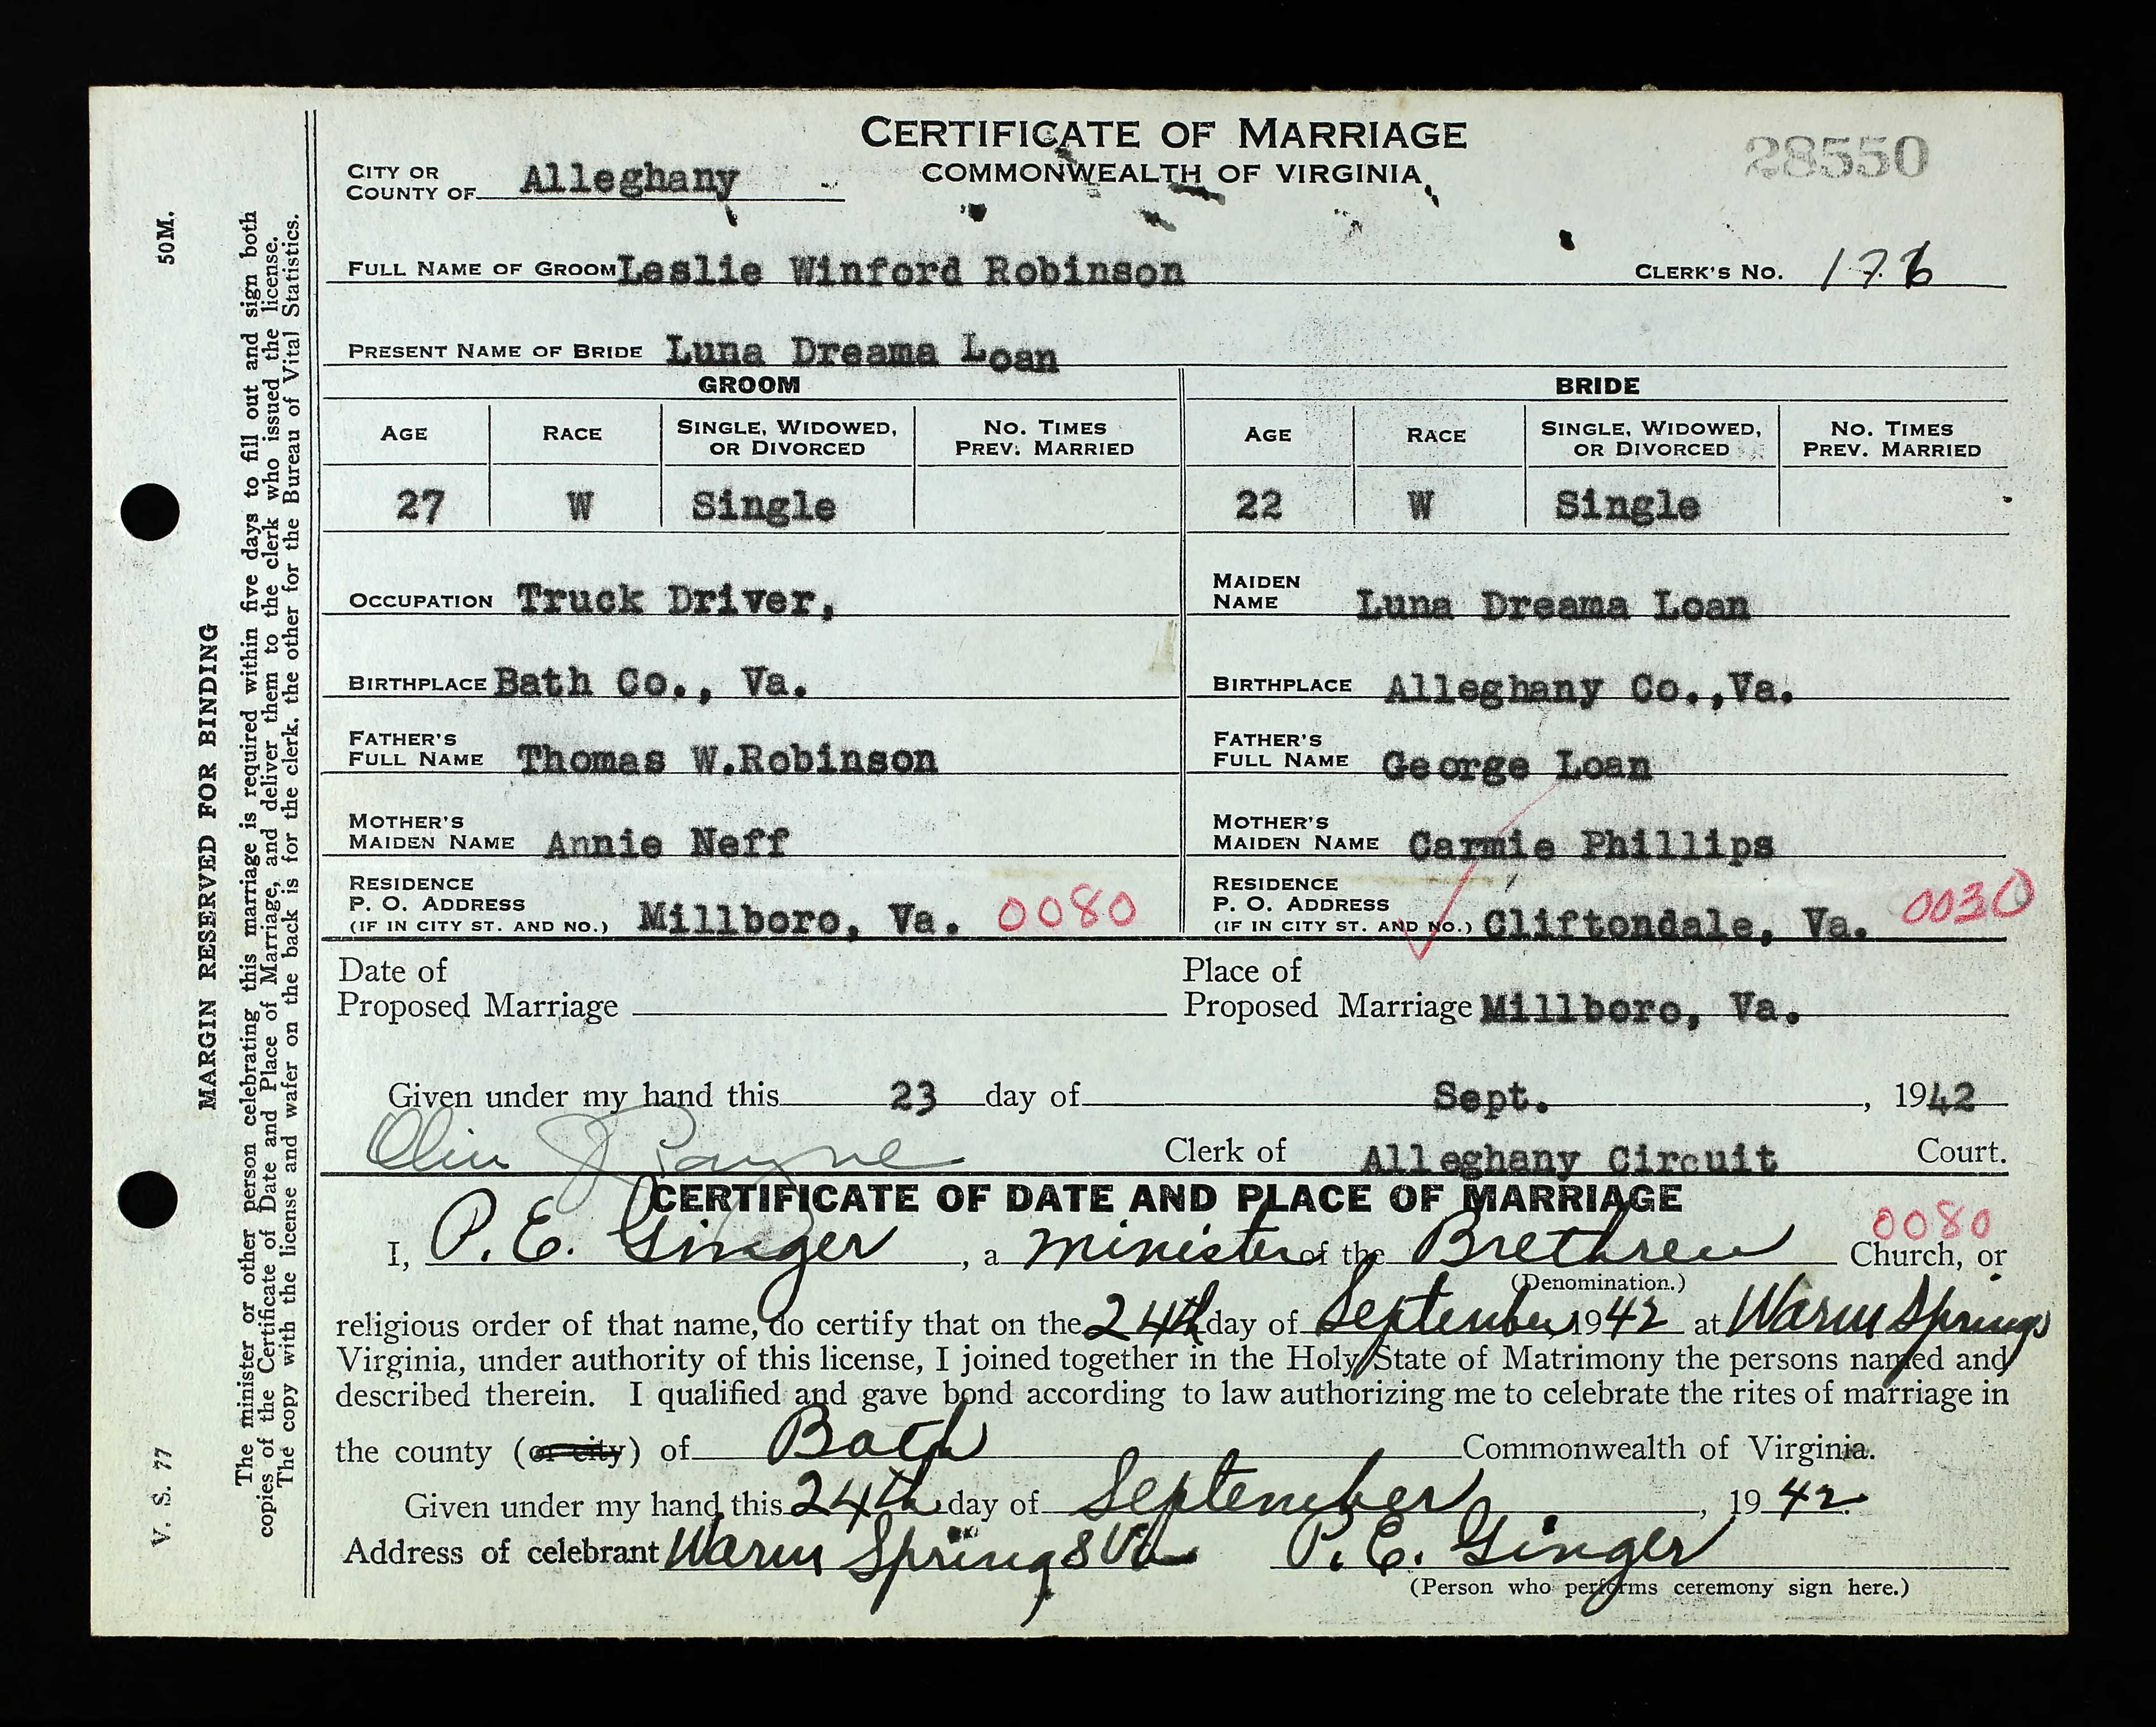 CERTIFICATE OF MARRIAGE
COMMONWEALTH OF VIRGINIA
28550
CITY OR
COUNTY OF Alleghany
FULL NAME OF GROOM Leslie Winford Robinson CLERK'S NO. 176
PRESENT NAME OF BRIDE Luna Dreama Loan
GROOM BRIDE
AGE RACE SINGLE, WIDOWED, OR DIVORCED NO. TIMES PREV. MARRIED AGE RACE SINGLE, WIDOWED, OR DIVORCED NO. TIMES PREV. MARRIED
27 W Single 22 W Single
OCCUPATION Truck Driver, MAIDEN NAME Luna Dreama Loan
BIRTHPLACE Bath Co., Va. BIRTHPLACE Alleghany Co.,Va.
FATHER'S FULL NAME Thomas W.Robinson FATHER'S FULL NAME George Loan
MOTHER'S MAIDEN NAME Annie Neff MOTHER'S MAIDEN NAME Carmie Phillips
RESIDENCE P. O. ADDRESS (IF IN CITY ST. AND NO.) Millboro, Va. 0080 RESIDENCE P. O. ADDRESS (IF IN CITY ST. AND NO.) Cliftondale, Va. 0030
Date of Proposed Marriage Place of Proposed Marriage Millboro, Va.
Given under my hand this 23 day of Sept. , 1942
Olin J Payne Clerk of Alleghany Circuit Court.
CERTIFICATE OF DATE AND PLACE OF MARRIAGE
0080
I, P. E. Ginger , a minister of the Brethren Church, or
(Denomination.)
religious order of that name, do certify that on the 24th day of September 1942 at Warm Springs
Virginia, under authority of this license, I joined together in the Holy State of Matrimony the persons named and
described therein. I qualified and gave bond according to law authorizing me to celebrate the rites of marriage in
the county (or city) of Bath Commonwealth of Virginia.
Given under my hand this 24th day of September , 1942
Address of celebrant Warm Springs Va P. E. Ginger
(Person who performs ceremony sign here.)
V. S. 77 50M.
MARGIN RESERVED FOR BINDING
The minister or other person celebrating this marriage is required within five days to fill out and sign both
copies of the Certificate of Date and Place of Marriage, and deliver them to the clerk who issued the license.
The copy with the license and wafer on the back is for the clerk, the other for the Bureau of Vital Statistics.